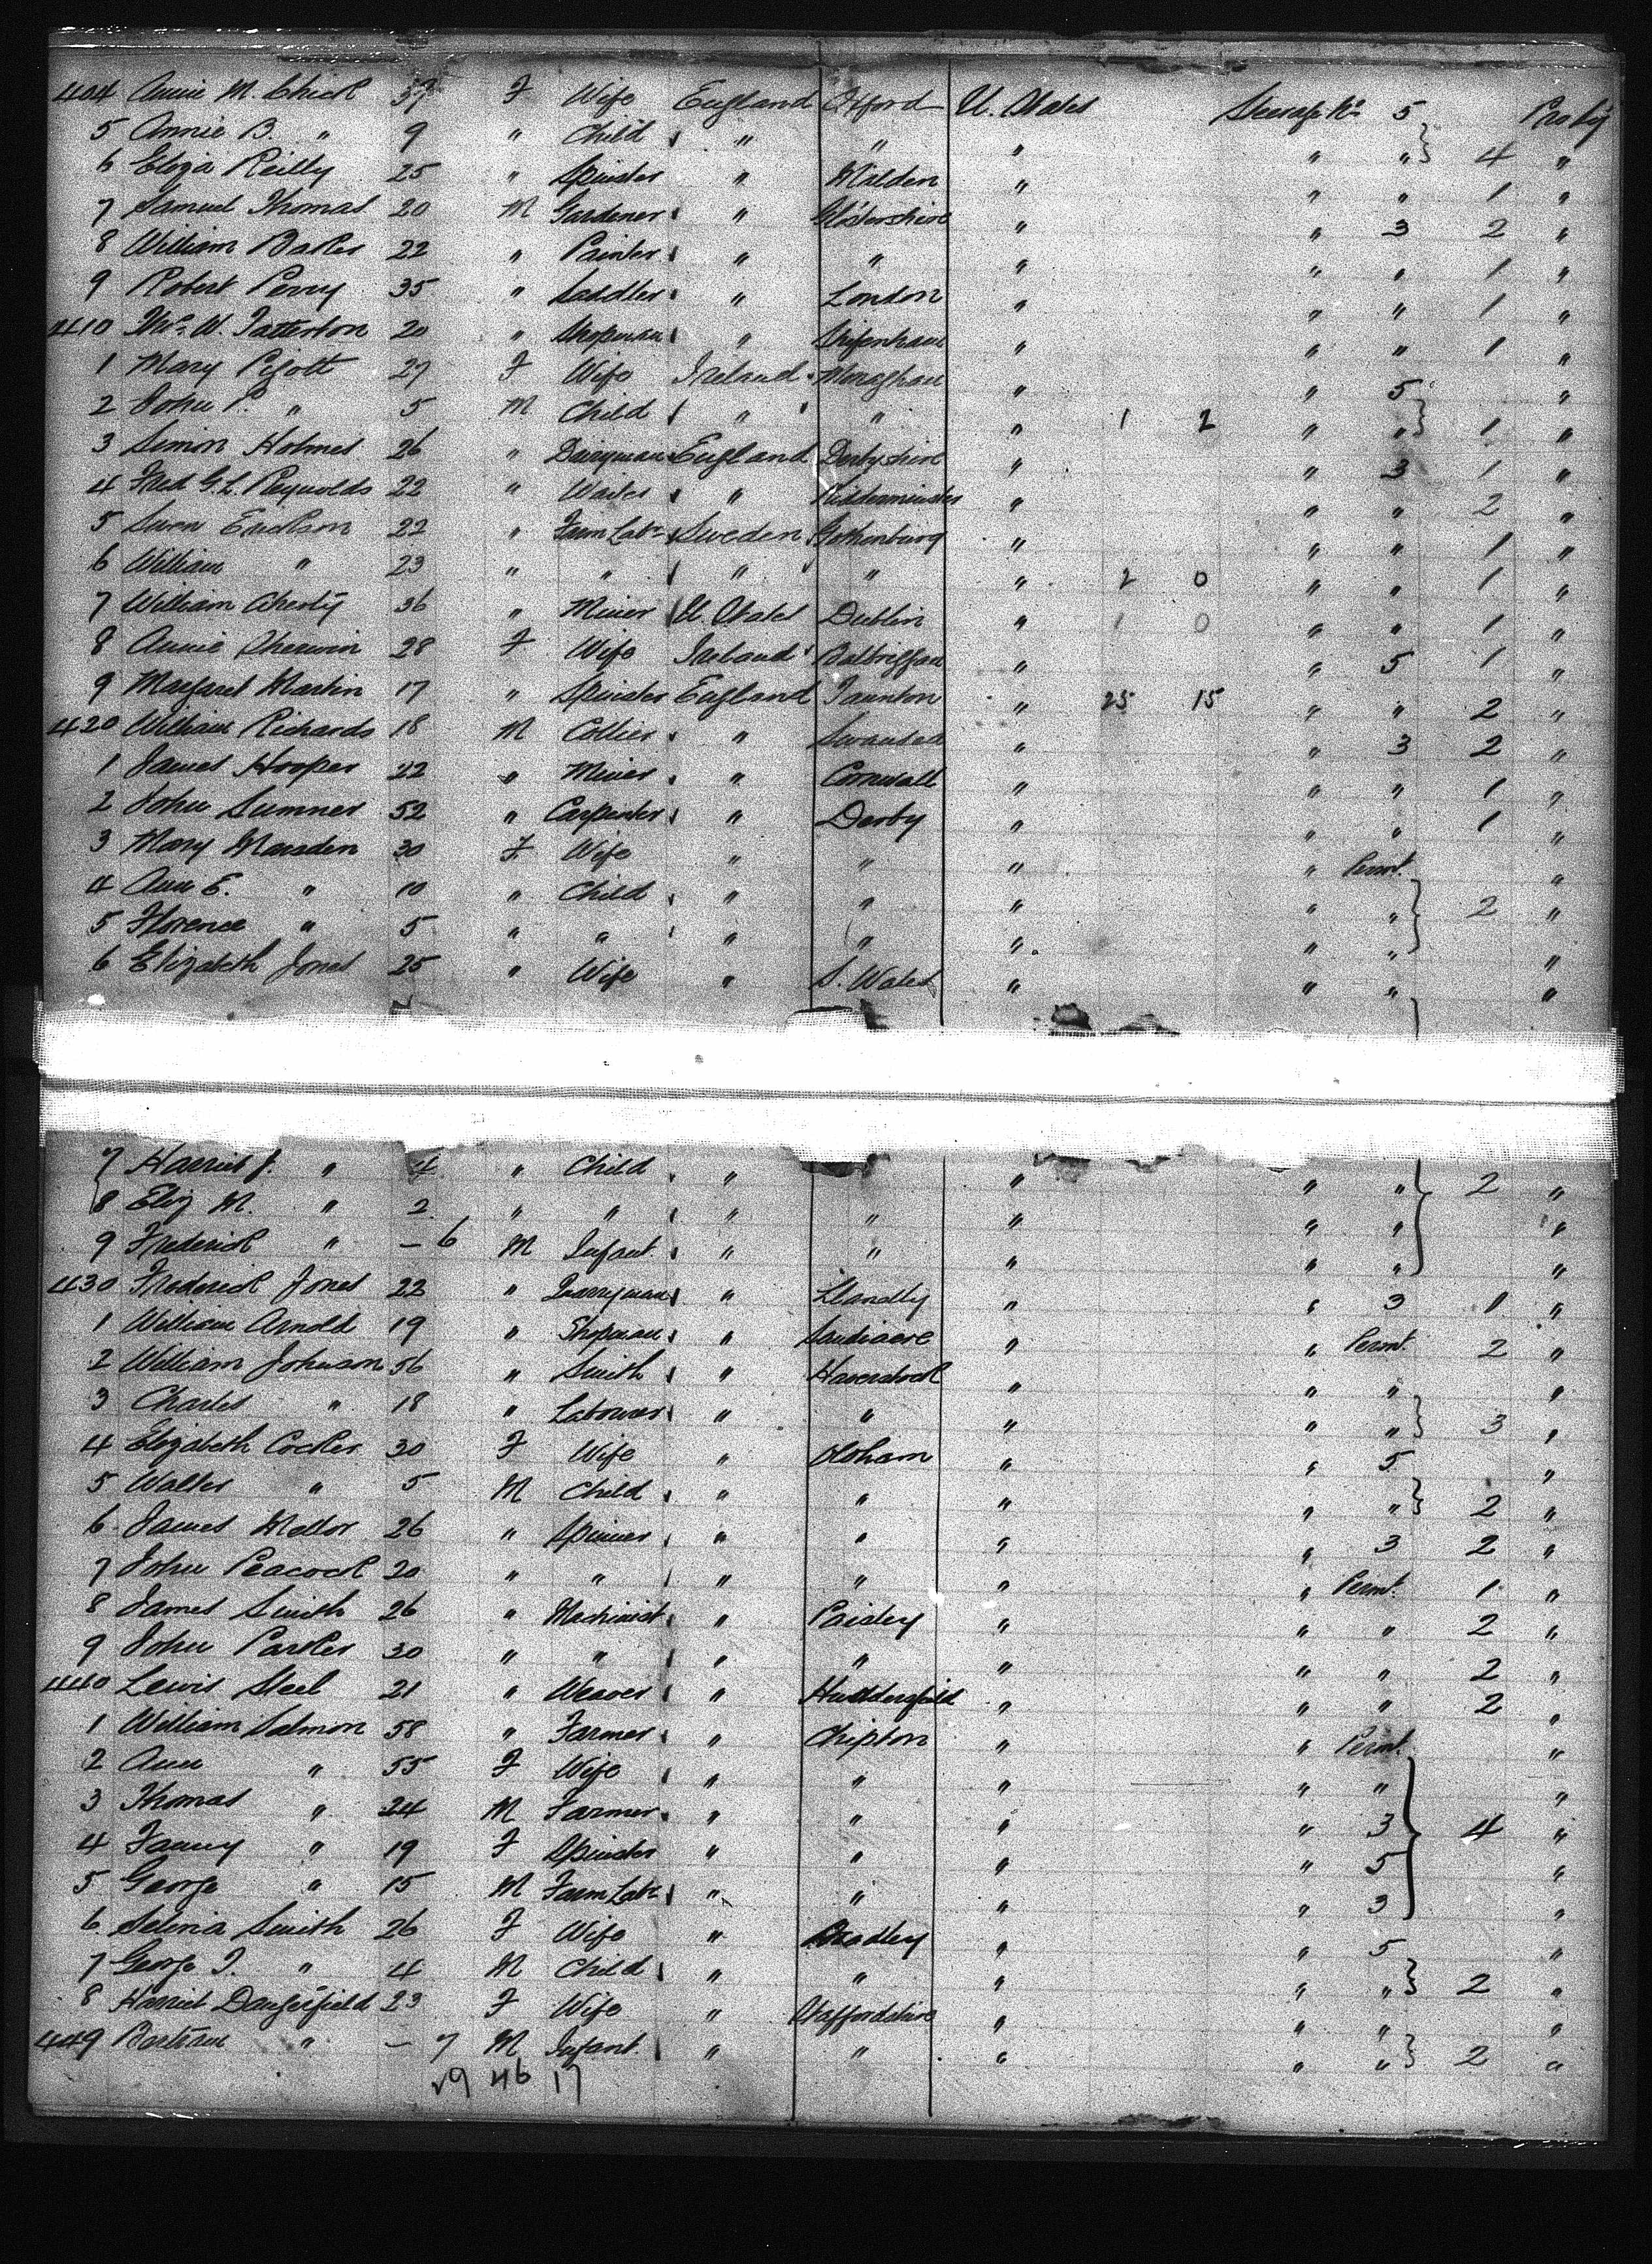 404 Annie M. Chick 37 F Wife England Oxford U. States Steerage No 5 Pro try
5 Annie B. " 9 " Child " " " " " } 4 "
6 Eliza Reilly 25 " Spinster " Malden " " " 1 "
7 Samuel Thomas 20 M Gardener " Glostershire " " 3 2 "
8 William Baker 22 " Painter " " " " " 1 "
9 Robert Perry 35 " Saddler " London " " " 1 "
410 Thos. W. Patterson 20 " Shopman " " " " 1 "
1 Mary Pigott 27 F Wife Ireland Monaghan " " 5 "
2 John P. " 5 M Child " " " 1 2 " " } 1 "
3 Simon Holmes 26 " Dairyman England Derbyshire " " 3 1 "
4 Fred G.L. Reynolds 22 " Waiter " Kidderminster " " " 2 "
5 Swen Erickson 22 " Farm Labr Sweden Gothenburg " " " 1 "
6 William " 23 " " " " " 2 0 " " 1 "
7 William 36 " Miner U. States Dublin " 1 0 " " 1 "
8 Annie Sherwin 28 F Wife Ireland Balbriggan " " 5 1 "
9 Margaret Martin 17 " Spinster England Taunton " 25 15 " " 2 "
420 William Richards 18 M Collier " Swansea " " 3 2 "
1 James Hooper 22 " Miner " Cornwall " " " 1 "
2 John Sumner 52 " Carpenter " Derby " " " 1 "
3 Mary Marsden 30 F Wife " " " " Permt. "
4 Ann E. " 10 " Child " " " " " } 2 "
5 Florence " 5 " " " " " " " "
6 Elizabeth Jones 25 " Wife " S. Wales " " " "
7 Harriet J. " 4 " Child " " " " 2 "
8 Eliz M. " 2 " " " " " " " "
9 Frederick " - 6 M Infant " " " " " "
430 Frederick Jones 22 " Quarryman " Llanelly " " 3 1 "
1 William Arnold 19 " Shopman " Sandiacre " " Permt. 2 "
2 William Johnson 56 " Smith " Haverstock " " " "
3 Charles " 18 " Labourer " " " " " } 3 "
4 Elizabeth Cocker 30 F Wife " Oldham " " 5 "
5 Walter " 5 M Child " " " " " } 2 "
6 James Mellor 26 " Spinner " " " " 3 2 "
7 John Peacock 20 " " " " " " Permt. 1 "
8 James Smith 26 " Machinist " Paisley " " " 2 "
9 John Parker 30 " " " " " " " 2 "
440 Lewis Steel 21 " Weaver " Huddersfield " " " 2 "
1 William Salmon 58 " Farmer " Chipton " " Permt. "
2 Ann " 55 F Wife " " " " " "
3 Thomas " 24 M Farmer " " " " 3 } 4 "
4 Fanny " 19 F Spinster " " " " 5 "
5 George " 15 M Farm Labr " " " " 3 "
6 Selina Smith 26 F Wife " Bradley " " 5 "
7 George T. " 4 M Child " " " " " } 2 "
8 Harriet Dangerfield 23 F Wife " Staffordshire " " " "
449 Bertram " - 7 M Infant " " " " " } 2 "
29 46 17